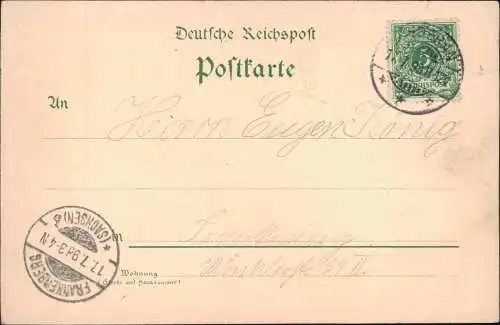 Deutsche Reichspost
Postkarte
An Herrn Eugen König
in Frankenberg
Wohnung
(Straße und Hausnummer)
FRANKENBERG
(SACHSEN)
17.7.98 3-4 N
5